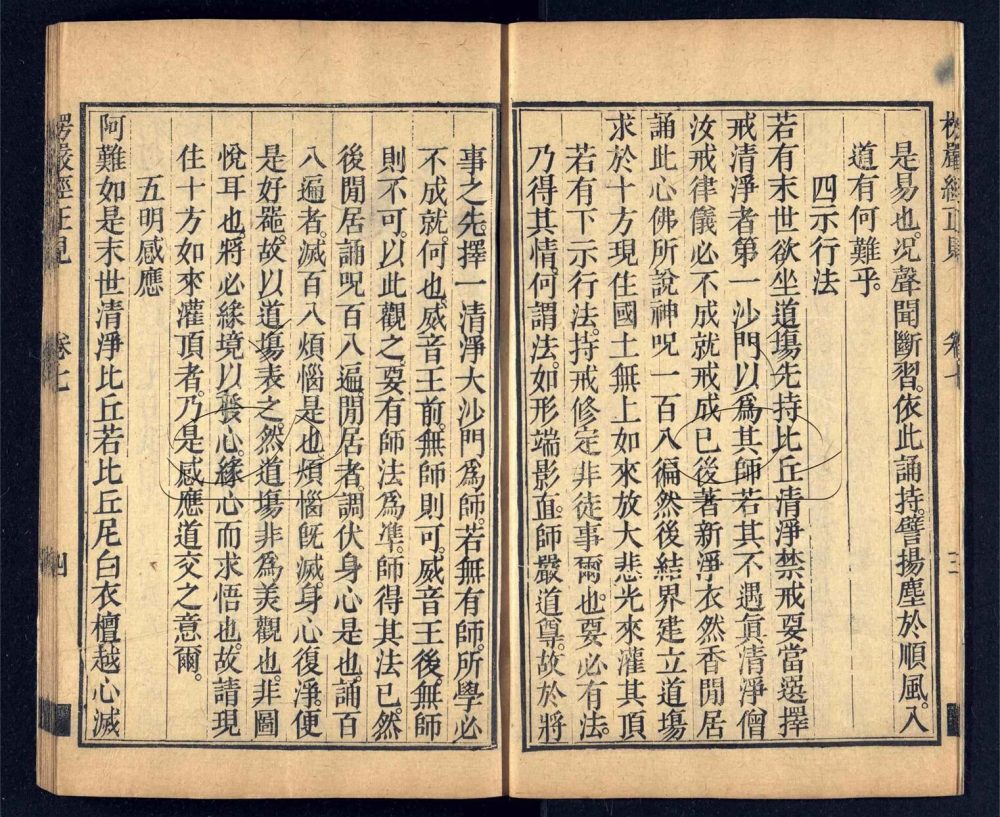 是易也。况聲聞斷習。依此誦持。譬揚塵於順風。入
道有何難乎。
四示行法
若有末世欲坐道場先持比丘清淨禁戒要當選擇
戒清淨者第一沙門以爲其師若其不遇眞清淨僧
汝戒律儀必不成就戒成已後著新淨衣然香閒居
誦此心佛所說神呪一百八徧然後結界建立道場
求於十方現住國土無上如來放大悲光來灌其頂
若有下示行法。持戒修定非徒事爾也。要必有法。
乃得其情。何謂法。如形端影直。師嚴道尊。故於將
事之先。擇一清淨大沙門爲師。若無有師。所學必
不成就。何也。威音王前。無師則可。威音王後。無師
則不可。以此觀之。要有師法爲準。師得其法已。然
後閒居誦呪百八遍。閒居者。調伏身心是也。誦百
八遍者。滅百八煩惱是也。煩惱旣滅。身心復淨。便
是好器。故以道塲表之。然道塲非爲美觀也。非圖
悅耳也。將必緣境以發心。緣心而求悟也。故請現
住十方如來灌頂者。乃是感應道交之意爾。
五明感應
阿難如是末世清淨比丘若比丘尼白衣檀越心滅
楞嚴經正見
卷七
四